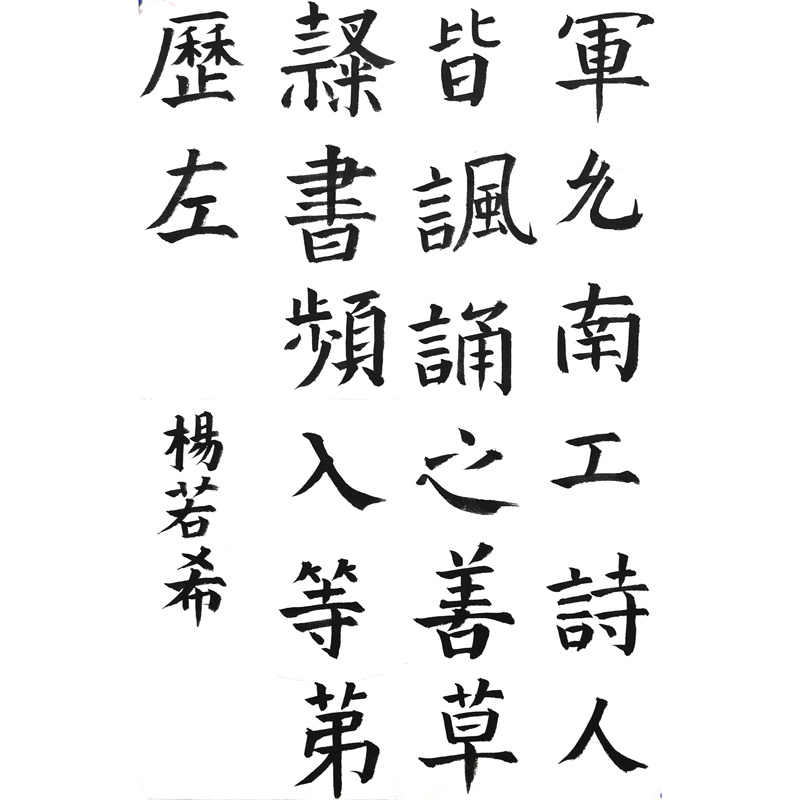 軍允南工詩人
皆諷誦之善草
隸書頻入等苐
歷左
楊若希